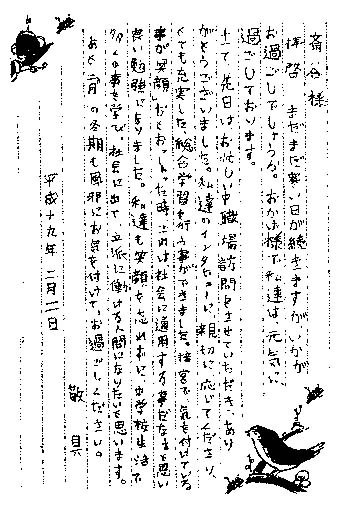 斎谷様
拝啓 まだまだ寒い日が続きますがいかが
お過ごしでしょうか。おかげ様で私達は元気に
過ごしております。
さて、先日はお忙しい中職場訪問をさせていただき、あり
がとうございました。私達のインタビューに親切に応じてくださり、
とても充実した総合学習を行う事ができました。接客で気を付けている
事が笑顔とおっしゃった時、これは社会に適用する事だなあと思い
良い勉強になりました。私達も笑顔を忘れずに中学校生活で
多くの事を学び、社会に出て立派に働ける人間になりたいと思います。
あと一月の冬期も風邪にお気を付けて、お過ごしください。
敬具
平成十九年 二月二日